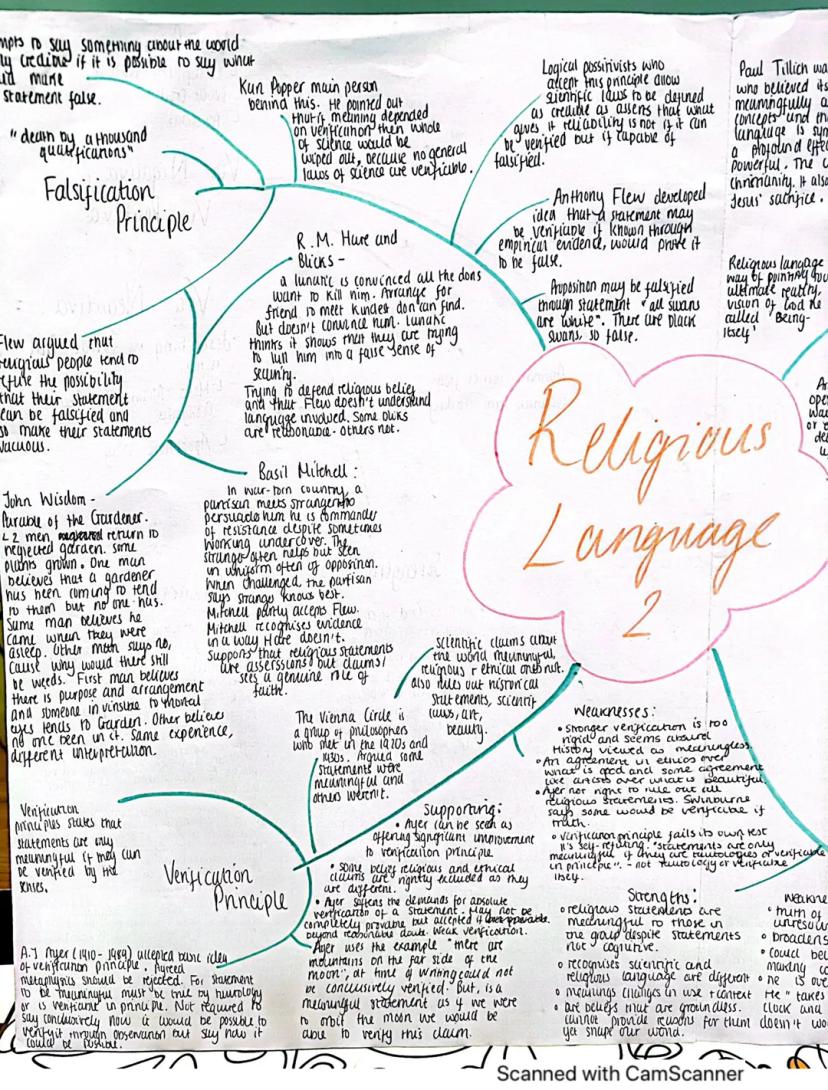 mpts to say something about the world
ly credible if it is possible to say what
ld make
statement false.
"death by a thousand
qualifications"
Falsification
Principle
Karl Popper main person
behind this. He pointed out
that if meaning depended
on verification then whole
of science would be
wiped out, because no general
laws of science are verifiable.
Logical possitivists who
accept this principle allow
scientific laws to be defined
as credible as asserts that what
gives it reliability is not if it can
be verified but if capable of
falsified.
Anthony Flew developed
idea that a statement may
be verifiable if known through
empirical evidence, would prove it
to be false.
Proposition may be falsified
through statement "all swans
are white". There are black
swans, so false.
R.M. Hare and
Blicks -
a lunatic is convinced all the dons
want to kill him. Arrange for
friend to meet kindest don can find.
But doesn't convince him. Lunatic
thinks it shows that they are trying
to lull him into a false sense of
security.
Trying to defend religious belief
and that Flew doesn't understand
language involved. Some bliks
are reasonable - others not.
Flew argued that
religious people tend to
refuse the possibility
that their statement
can be falsified and
so make their statements
vacuous.
Basil Mitchell:
In war-torn country, a
partisan meets stranger who
persuades him he is commander
of resistance despite sometimes
working undercover. The
stranger often helps but seen
in uniform often of opposition.
When challenged, the partisan
says stranger knows best.
Mitchell partly accepts Flew.
Mitchell recognises evidence
in a way Hare doesn't.
Supports that religious statements
are asserssions but claims/
sees a genuine role of
faith.
John Wisdom -
Parable of the Gardener.
2 men, return to
neglected garden. Some
plants grown. One man
believes that a gardener
has been coming to tend
to them but no one has.
Same man believes he
came when they were
asleep. Other man says no,
cause why would there still
be weeds. First man believes
there is purpose and arrangement
and someone invisible to mortal
eyes tends to Garden. Other believes
no one been in it. Same experience,
different interpretation.
Religious
Language
2
Paul Tillich wa
who believed its
meaningfully a
concepts and th
language is sym
a profound effe
powerful. The c
Christianity. It also
Jesus' sacrifice.
Religious language
way of pointing tow
ultimate reality,
vision of God he
called 'Being-
Itself'
Scientific claims about
the world meaningful,
religious + ethical ones not.
also rules out historical
statements, scientific
laws, art,
beauty.
The Vienna Circle is
a group of philosophers
who met in the 1920s and
1930s. Argued some
statements were
meaningful and
others weren't.
Verification
principles states that
statements are only
meaningful if they can
be verified by the
senses.
Verification
Principle
Supporting:
• Ayer can be seen as
offering significant improvement
to verification principle
• some belief religious and ethical
claims are rightly excluded as they
are different.
• Ayer softens the demands for absolute
verification of a statement. May not be
completely provable but accepted if
beyond reasonable doubt. Weak verification.
• Ayer uses the example "there are
mountains on the far side of the
moon", at time of writing could not
be conclusively verified. But, is a
meaningful statement as if we were
to orbit the moon we would be
able to verify this claim.
A.J Ayer (1910 - 1989) accepted basic idea
of verification principle. Agreed
metaphysics should be rejected. For statement
to be meaningful must be true by tautology
or is verifiable in principle. Not required to
say conclusively now it would be possible to
verify it through observation but say how it
could be possible.
Weaknesses:
• Stronger verification is too
rigid and seems absurd
History viewed as meaningless.
• An agreement in ethics over
what is good and some agreement
like artists over what is beautiful.
• Ayer not right to rule out all
religious statements. Swinburne
says some would be verifiable if
truth.
• verification principle fails its own test
it's self-refuting. "statements are only
meaningful if they are tautologies or verifiable
in principle". - not tautology or verifiable
itself.
Strengths:
• religious statements are
meaningful to those in
the group despite statements
not cognitive.
• recognises scientific and
religious language are different
• meanings changes in use + context
• are beliefs that are groundless.
cannot provide reasons for them
yet shape our world.
Weakne
• truth of
unresolv
• broadens
• could be
making c
• he is ove
He "takes
clock and
doesn't wo
Scanned with CamScanner